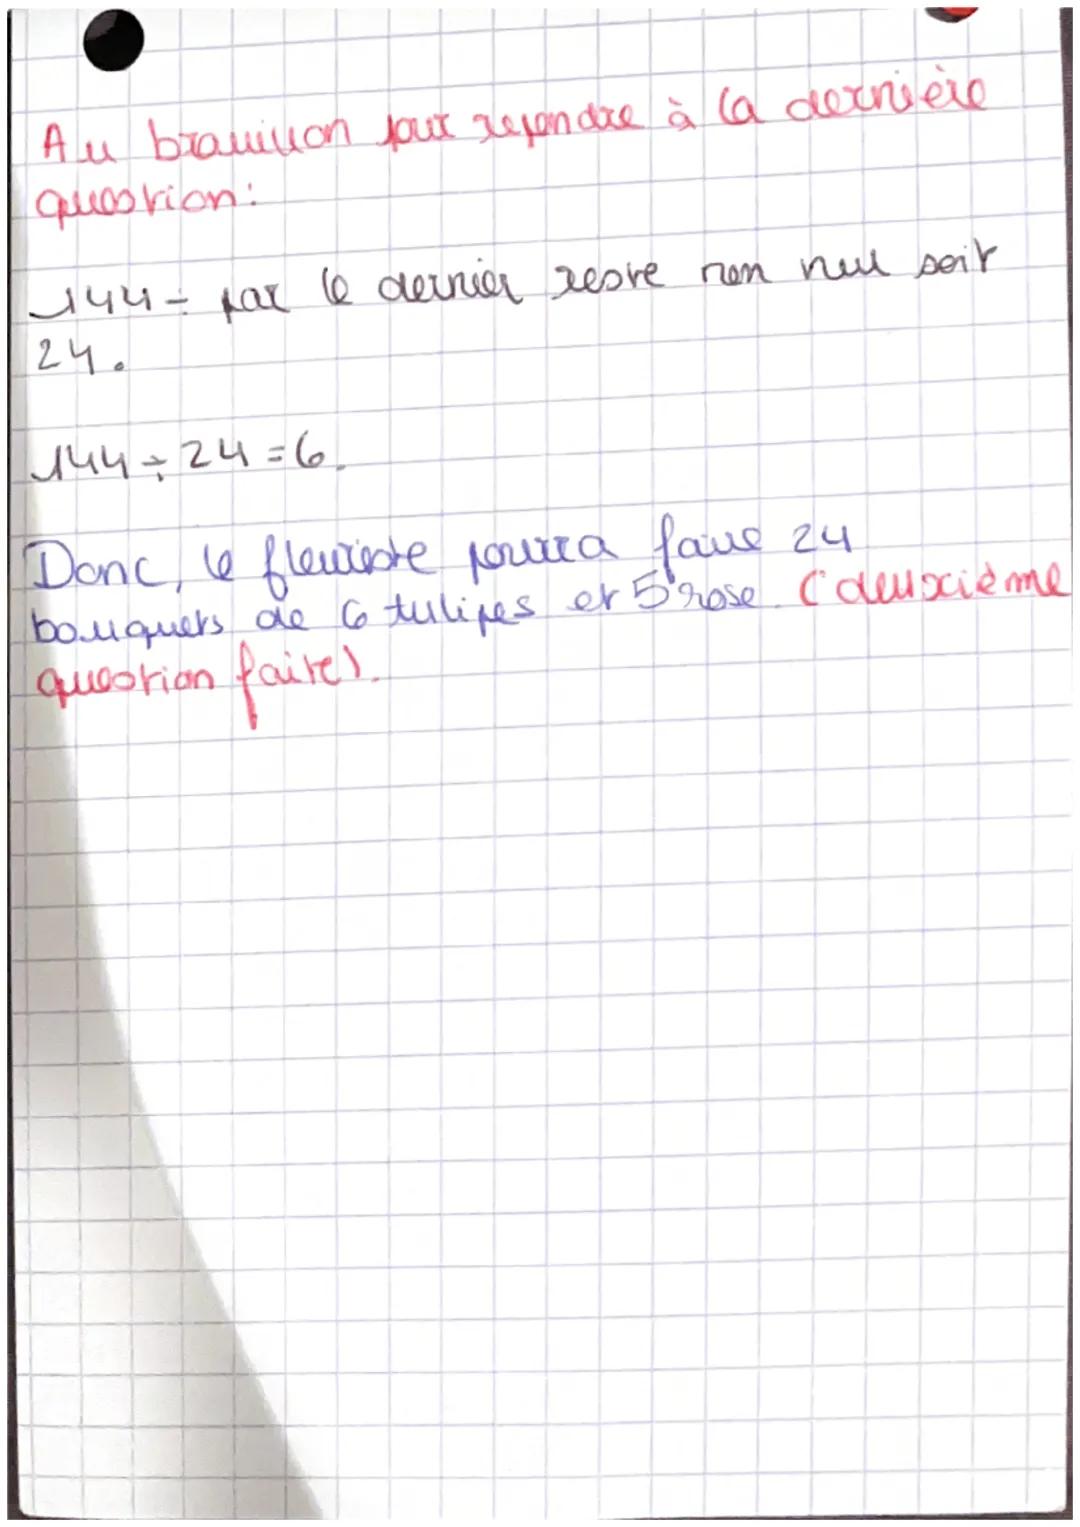 Au brouillon pour repondre à la dernière
question:
144÷ par le dernier reste non nul soit
24.
144÷24=6.
Donc, le fleuriste pourra faire 24
bouquets de 6 tulipes et 5 rose. (deuxième
question faite).